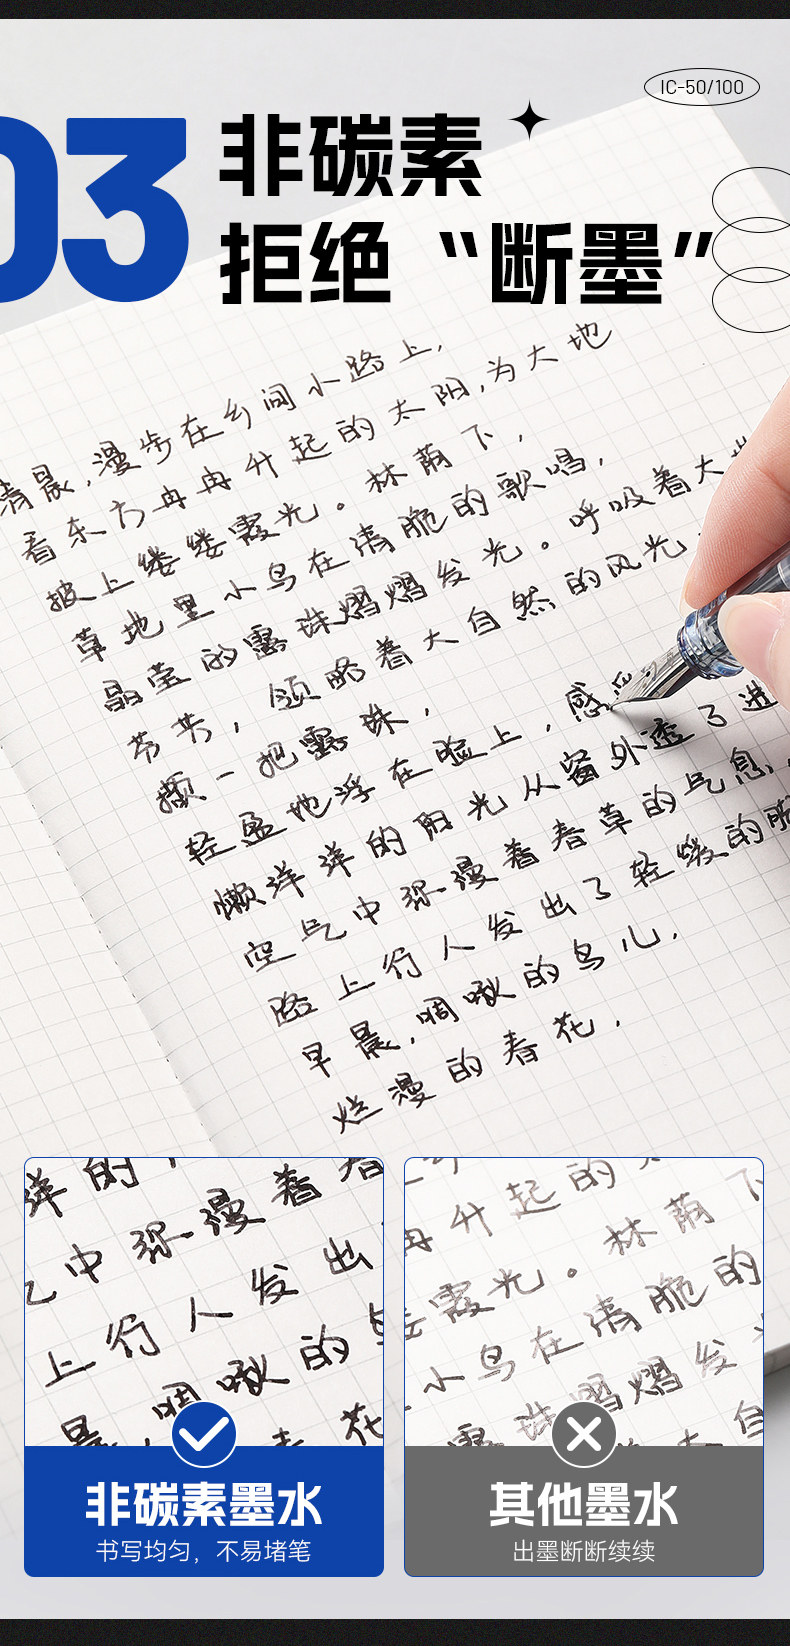 IC-50/100
03
非碳素
拒绝“断墨”
清晨,漫步在乡间小路上,
看东方冉冉升起的太阳,为大地
披上缕缕霞光。林荫下,
草地里小鸟在清脆的歌唱,
晶莹的露珠熠熠发光。呼吸着大地
芬芳,领略着大自然的风光,
撷一把露珠,
轻盈地浮在脸上,感受
懒洋洋的阳光从窗外透了进
空气中弥漫着春草的气息,
路上行人发出了轻缓的脚
早晨,啁啾的鸟儿,
烂漫的春花,
洋的
中弥漫着春
上行人发出
晨,啁啾的鸟
花
冉升起的
霞光。林荫下
小鸟在清脆的
露珠熠熠发
大自
非碳素墨水
书写均匀，不易堵笔
其他墨水
出墨断断续续